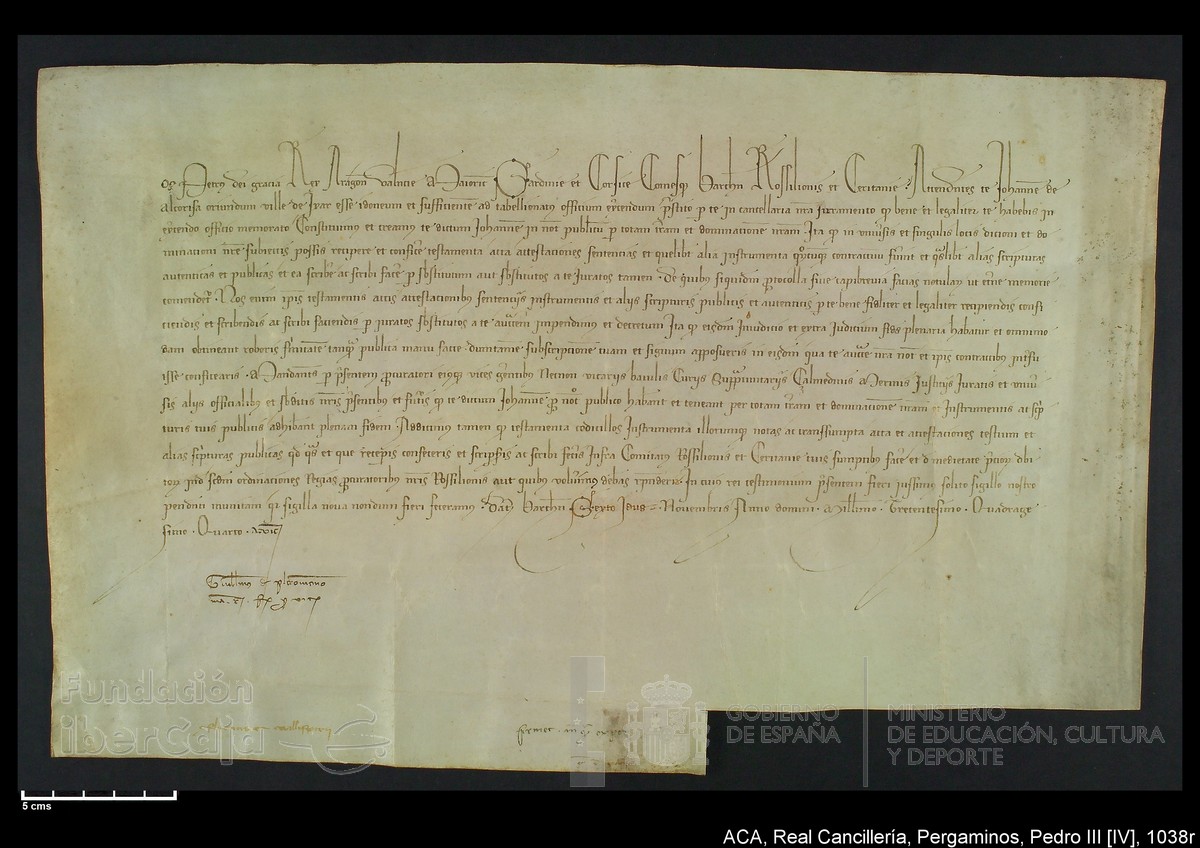 os Petrus dei gracia Rex Aragon Valencie Maioric Sardinie et Corsice Comesq Barchn Rossilionis et Ceritanie Attendentes te Johannem de
Altorisa oriundum ville de esse idoneum et sufficientem ad tabellionatus officium exercendum prestito p te in cancellaria nra juramento q bene et legaliter te habebis in
exercendo officio memorato Constituimus et creamus te dictum Johannem in not publicu p totam terram et dominatione nram Ita q in universis et singulis locis dicioni et do
minacioni nre subiectis possis recipere et conficere testamenta acta attestaciones sentencias et quelibet alia instrumenta contractuu et quaslibet alias scripturas
autenticas et publicas et ea scribere ac scribi facere p substitutum aut substitutos a te juratos tamen De quibus siquidem protocolla sive capibrevia facias notulas ut eterne memorie
comendetur Nos enim ipsis testamentis actis attestacionibus sentencijs instrumentis et alijs scripturis publicis et autenticis p te bene fideliter et legaliter recipiendis confi
ciendis et scribendis ac scribi faciendis p juratos substitutos a te auctem impendimus et decretum Ita q eisdem in judicio et extra judicium fides plenaria habeatur et omnimo
dam obtineant roboris firmitatem tamq publica manu facte dumtamen subscripcionem tuam et signum apposueris in eisdem qua te auctte nra not et ipsis contractibus
isse confitearis Mandantes p presentem procuratori eiusq vices gerentibus Necnon vicarijs baiulis Curijs suprajunctarijs Calmedinis Merinis Justicijs Juratis et univer
sis alijs officialibus et subditis nris presentibus et futuris q te dictum Johannem pro not publico habeant et teneant per totam terram et dominacionem nram et Instrumentis ac scrip
turis tuis publicis adhibeant plenam fidem Addicimus tamen q testamenta codicillos Instrumenta illorumq notas ac transsumpta acta et attestaciones testium et
alias scripturas publicas et que receperis confeceris et scripseris ac scribi feceris Infra Comitatus Rossilionis et Ceritanie tuis sumptibus facere et d medietate
ordinaciones Regias procuratoribus nris Rossilionis aut quibus voluerimus debeas respondere In cuius rei testimonium presentem fieri jussimus solito sigillo nostro
pendenti munitam quia sigilla nova nondum fieri feceramus Dat Barchn Sexto Idus Novembris Anno domini Millesimo Trecentesimo Quadrage
simo Quarto
Guillmus

Fundación
iberCaja
GOBIERNO
DE ESPAÑA
MINISTERIO
DE EDUCACIÓN, CULTURA
Y DEPORTE
5 cms
ACA, Real Cancillería, Pergaminos, Pedro III [IV], 1038r